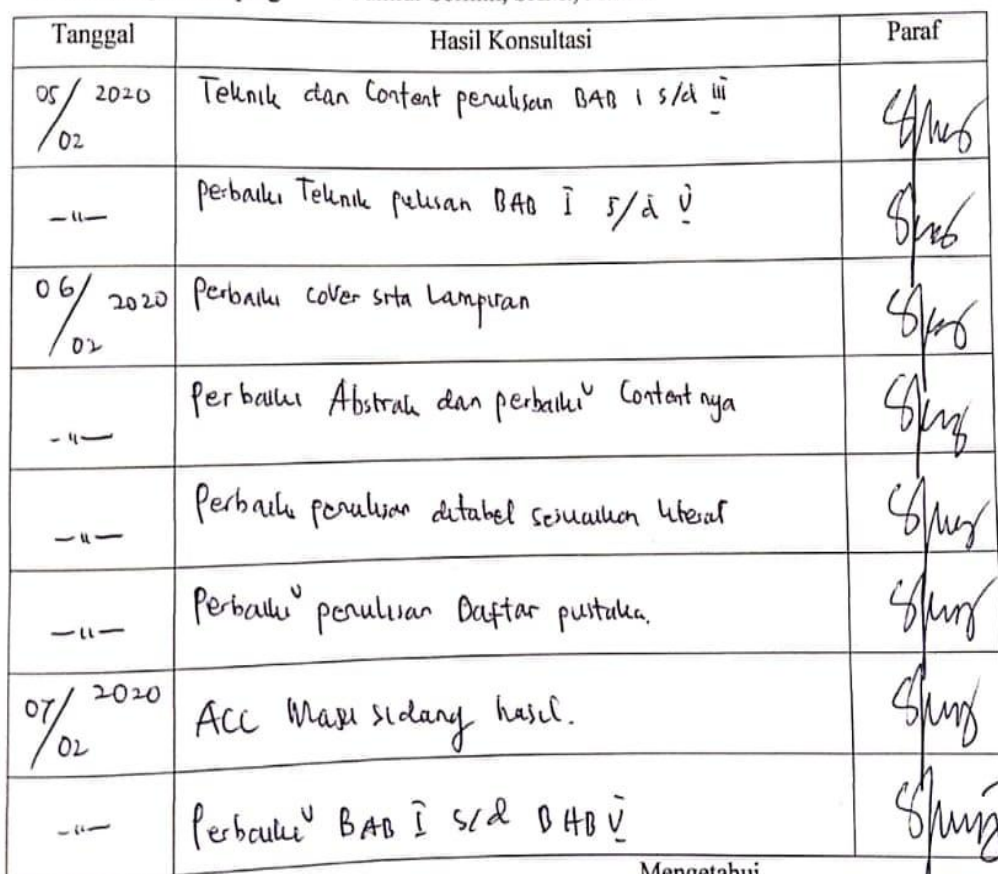 Tanggal Hasil Konsultasi Paraf
05/02 2020 Teknik dan Content penulisan BAB I s/d III
—"— Perbaiki Teknik pulisan BAB I s/d V
06/02 2020 Perbaiki cover srta Lampiran
—"— Perbaiki Abstrak dan perbaiki Contentnya
—"— Perbaiki penulisan ditabel sesuaikan
—"— Perbaiki penulisan Daftar pustaka.
07/02 2020 ACC sidang hasil.
—"— Perbaiki BAB I s/d BAB V
Mengetahui